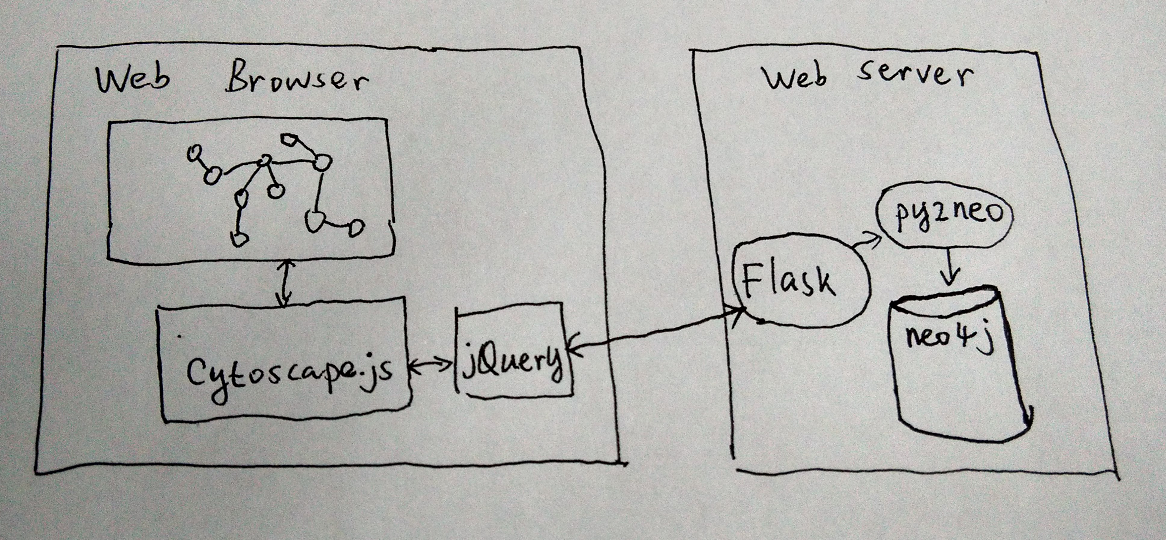 Web Browser
Cytoscape.js
jQuery
Web server
Flask
py2neo
neo4j